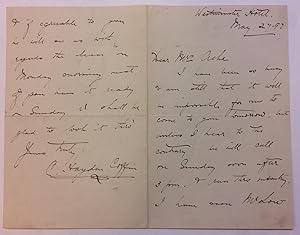 Westminster Hotel.
May 27. 97
Dear Mrs Ashe
I have been so busy
& am still that it will
be impossible for me to
come to you tomorrow. but
unless I hear to the
contrary, I will call
on Sunday soon after
3 p.m. & run thro
I have seen Mr Low
& if agreeable to you
he will see us both
regards the
Monday morning next
if you have it ready
on Sunday I shall be
glad to look it thro'
Yours truly,
C. Hayden Coffin